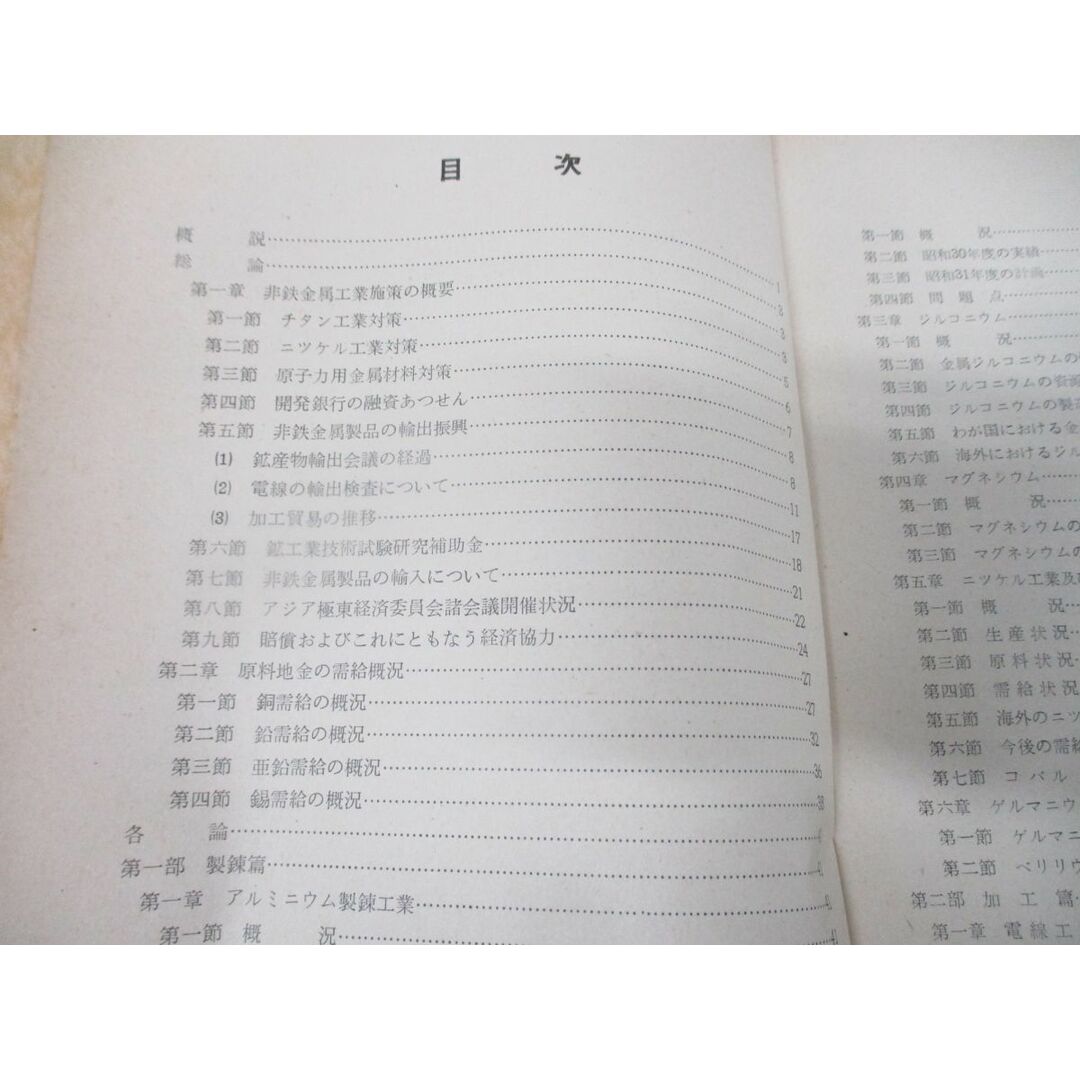 目次
概説……1
総論……3
第一章 非鉄金属工業施策の概要……3
第一節 チタン工業対策……3
第二節 ニツケル工業対策……5
第三節 原子力用金属材料対策……6
第四節 開発銀行の融資あつせん……7
第五節 非鉄金属製品の輸出振興……8
(1) 鉱産物輸出会議の経過……8
(2) 電線の輸出検査について……11
(3) 加工貿易の推移……17
第六節 鉱工業技術試験研究補助金……18
第七節 非鉄金属製品の輸入について……21
第八節 アジア極東経済委員会諸会議開催状況……22
第九節 賠償およびこれにともなう経済協力……24
第二章 原料地金の需給概況……27
第一節 銅需給の概況……27
第二節 鉛需給の概況……32
第三節 亜鉛需給の概況……36
第四節 錫需給の概況……38
各論……
第一部 製錬篇……41
第一章 アルミニウム製錬工業……41
第一節 概況……41
第一節 概況……
第二節 昭和30年度の実績……
第三節 昭和31年度の計画……
第四節 問題点……
第三章 ジルコニウム……
第一節 概況……
第二節 金属ジルコニウムの
第三節 ジルコニウムの資源
第四節 ジルコニウムの製造
第五節 わが国における金
第六節 海外におけるジル
第四章 マグネシウム……
第一節 概況……
第二節 マグネシウムの
第三節 マグネシウムの
第五章 ニツケル工業及
第一節 概況……
第二節 生産状況……
第三節 原料状況……
第四節 需給状況
第五節 海外のニツ
第六節 今後の需給
第七節 コバル
第六章 ゲルマニウ
第一節 ゲルマニ
第二節 ベリリウ
第二部 加工篇……
第一章 電線工